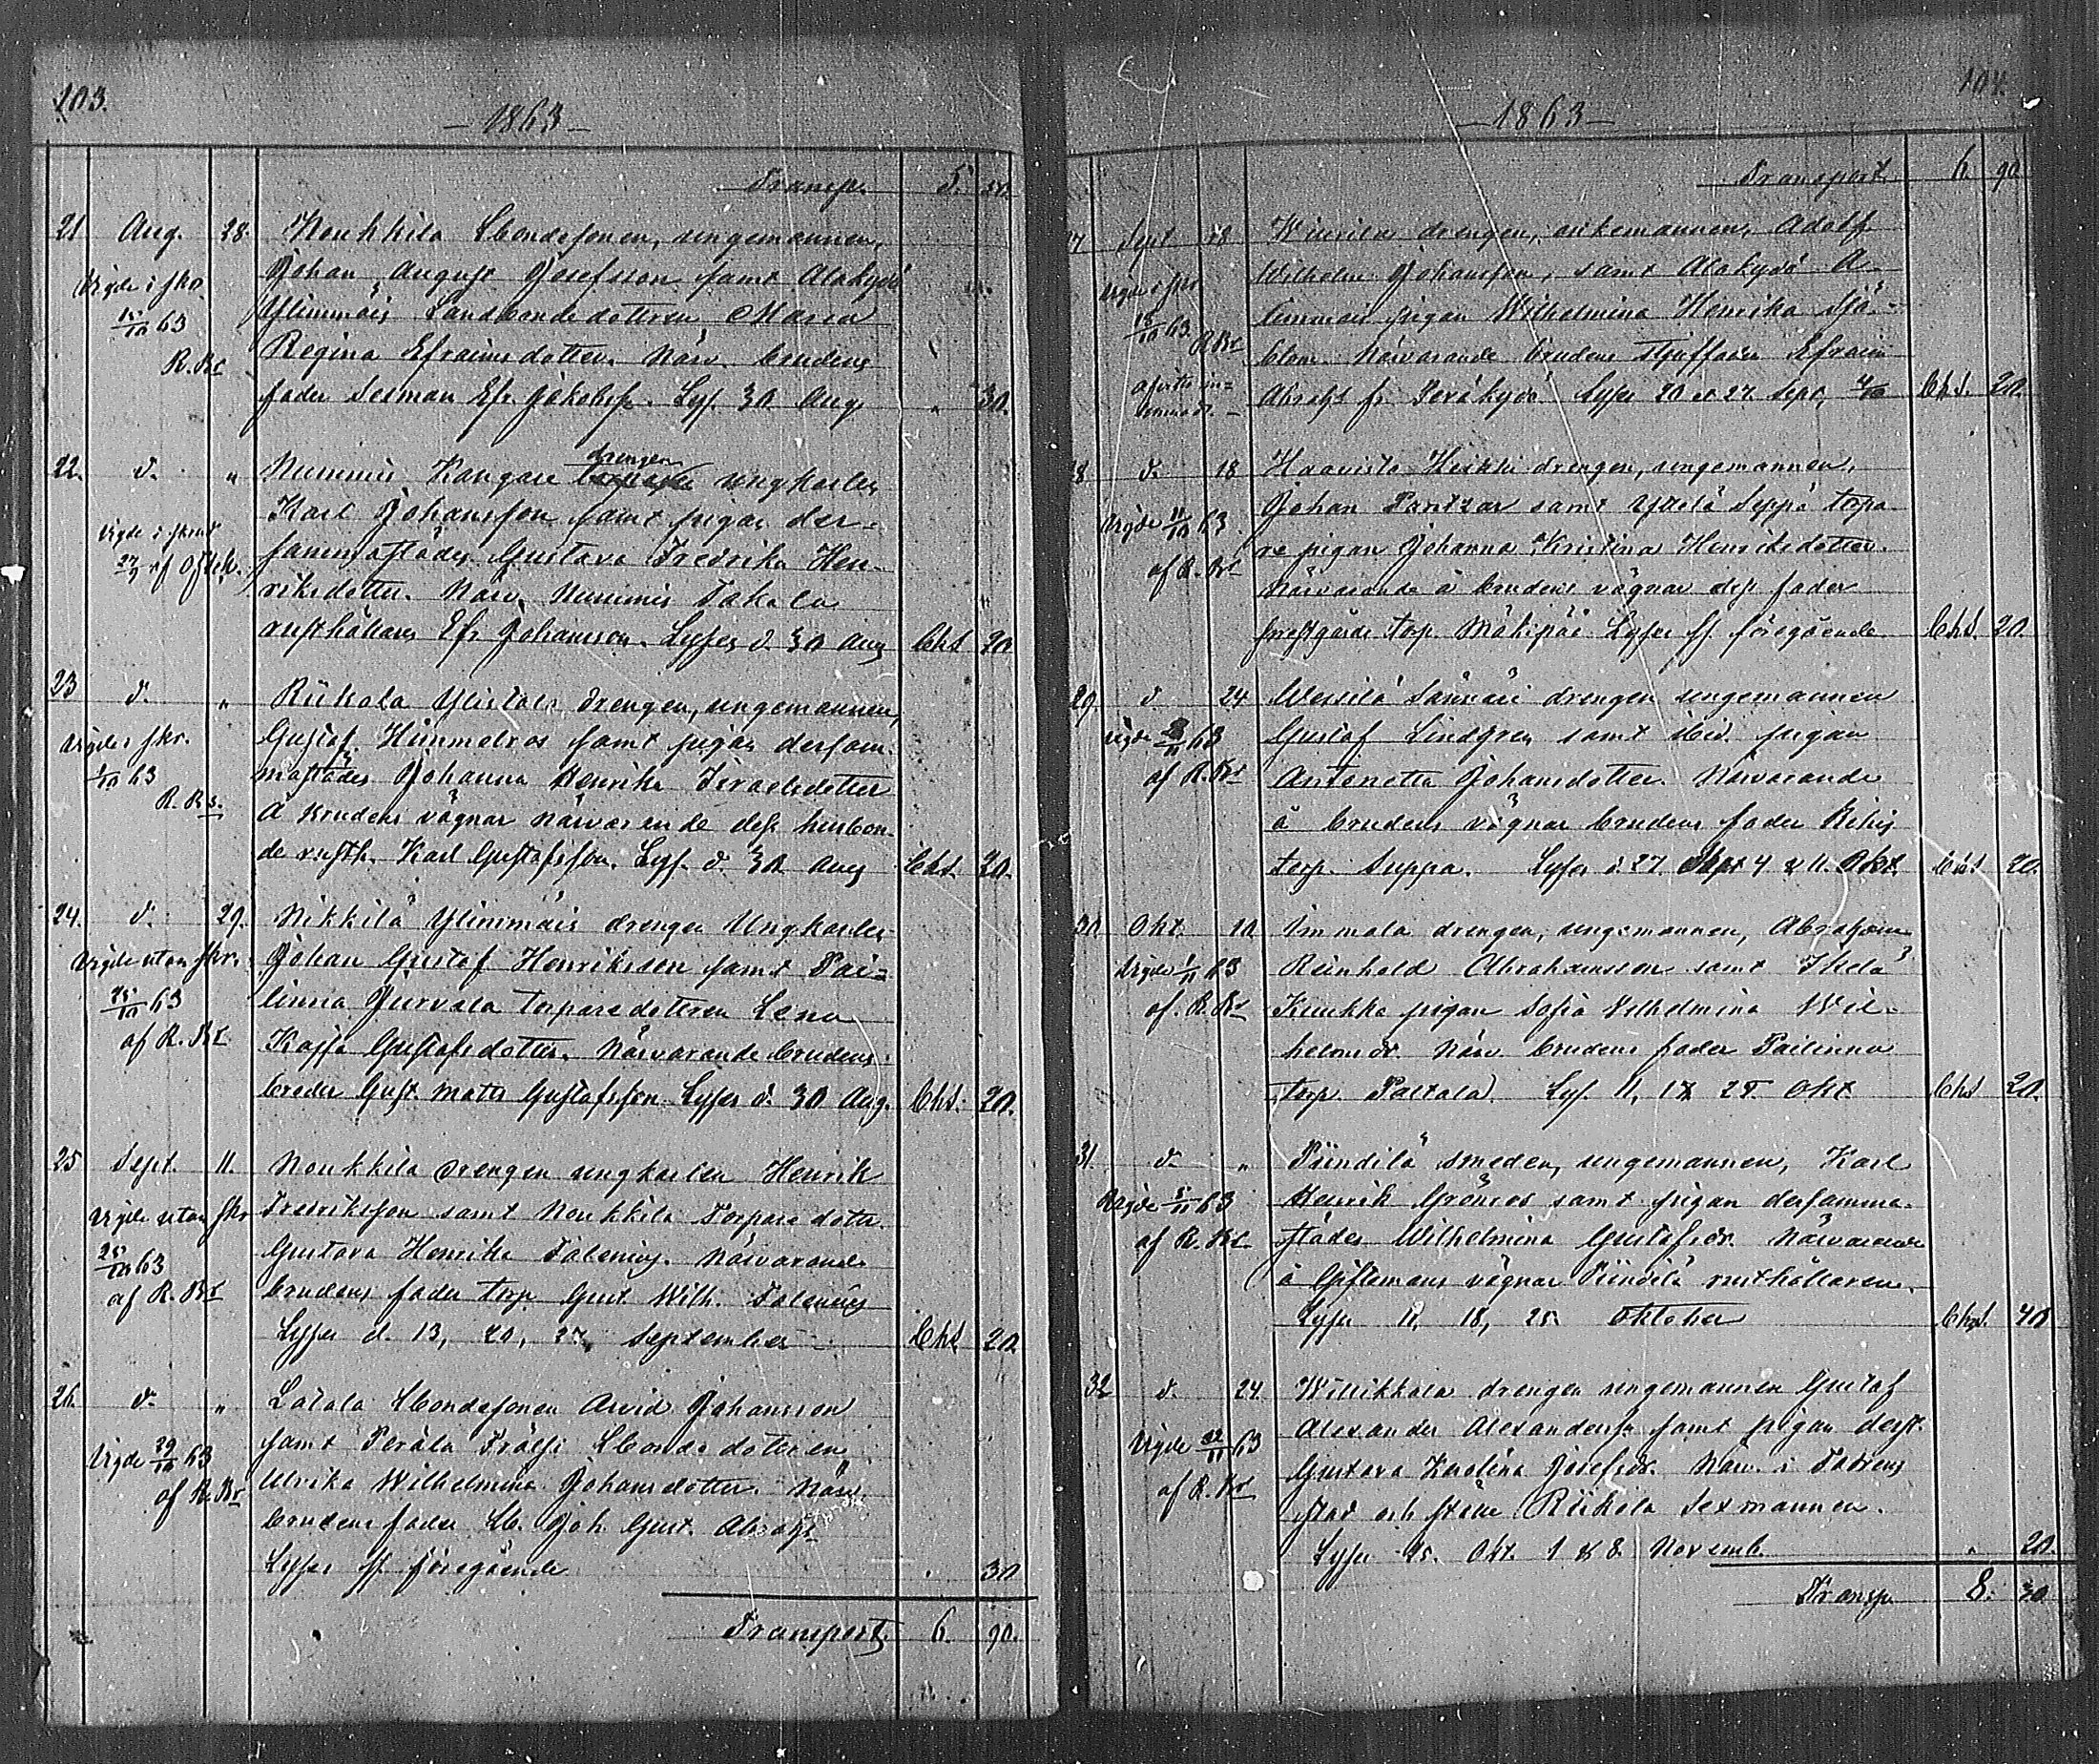 103.
— 1863 —
Transp. 5. 50.
21 Aug. 28. Noukkila Lbondesonen, ungemannen,
Johan August Josefsson samt Alakylä
Ylimmäis Landbondedottren Maria
Regina Efraimsdotter. Närv. brudens
fader Sexman Efr. Jakobss. Lys. 30 Aug. „ 30.
Vigde i skr.
63
R. Br
22. d. „ Nummis Kangare drengen ungkarlen
Karl Johansson samt pigan der-
sammastädes Gustava Fredrika Hen-
riksdotter. Närv. Nummis Takala
rusthållare Efr. Johansson. Lyses d. 30 Aug Chs 20.
Vigde i skrud
27/9 af
23 d. „ Riikola Ylistalo drengen, ungemannen,
Gustaf Himmelros samt pigan dersam-
mastädes Johanna Henrika Israelsdotter
Å brudens vägnar närvarande dess husbon-
de rusth. Karl Gustafsson. Lys. d. 30 Aug Chs. 20.
Vigde i skr.
1/10 63
R. Br.
24. d. 29. Nikkilä Ylimmäis drengen Ungkarlen
Johan Gustaf Henriksson samt Pai-
linna Jurvala torparedottren Lena
Kajsa Gustafsdotter. Närvarande brudens
broder Gust. Matts Gustafsson. Lyses d. 30 Aug. Chs. 20.
Vigde utan skr.
25/10 63
af R. Br
25 Sept. 11. Noukkila drengen ungkarlen Henrik
Fredriksson samt Noukkila Torparedottr.
Gustava Henrika Talenius. Närvarande
brudens fader torp. Gust. Wilh. Talenius
Lyses d. 13, 20, 27, September Chs. 20
Vigde utan skr
25/10 63
af R. Br
26. d. „ Latala Lbondesonen Arvid Johansson
samt Peräla Frälsi Lbondedottren
Ulrika Wilhelmina Johansdotter. Närv.
brudens fader Lb. Joh. Gust. Abrahs
Lyses ss. föregående . 30
Vigde 29/10 63
af R. Br
Transport 6. 90.
104.
— 1863 —
Transport 6. 90
27 Sept 18 drengen, enkemannen, Adolf
Wilhelm Johansson, samt Alakylä A-
limmais pigan Wilhelmina Henrika Sjö-
blom. Närvarande brudens styffader Efraim
Abrahs fr. Peräkylä. Lyses 20 o 27 Sept, 4/10 Chs. 20.
Vigde i skr
18/10 63.
R. Br
28 d. 18 Haavisto Heikki drengen, ungemannen,
Johan Pantzar samt Yttelä Seppä torpa-
re pigan Johanna Kristina Henriksdotter.
Närvarande å brudens vägnar dess fader
prestgårds torp. Mäkipää. Lyses ss. föregående. Chs. 20.
Vigde 11/10 63
af R. Br
29 d 24 Sännäis drengen ungemannen
Gustaf Lindgren samt ibid. pigan
Antonetta Johansdotter. Närvarande
å brudens vägnar brudens fader
torp. Seppä. Lyses d. 27 Sept 4 & 11. Okt. Chs. 20.
Vigde 63
af R. Br
30. Okt. 10. Immala drengen, ungemannen, Abraham
Reinhold Abrahamsson samt Ikelä
Kuukka pigan Sofia Wilhelmina Wil-
helmsdr. Närv. brudens fader Pailinna
torp. Paltala. Lys. 11, 18 25. Okt. Chs 20.
Vigde 1/11 63
af. R. Br
31. d. „ Piindilä smeden, ungemannen, Karl
Henrik Grönros samt pigan dersamma-
städes Wilhelmina Gustafsdr. Närvarande
å Giftomans vägnar Piindilä rusthållaren.
Lyses 11, 18, 25. Oktober Chs. 40
Vigde 63
af R. Br
32 d. 24. Willikkala drengen ungemannen Gustaf
Alexander Alexanderss. samt pigan derst.
Gustava Karolina Josefsdr. Närv. i Fadrens
stad och ställe Riikola Sexmannen.
Lyses 25. Okt. 1 & 8. Novemb. „ 20.
Vigde 22/11 63
af R. Br
Transp. 8. 30